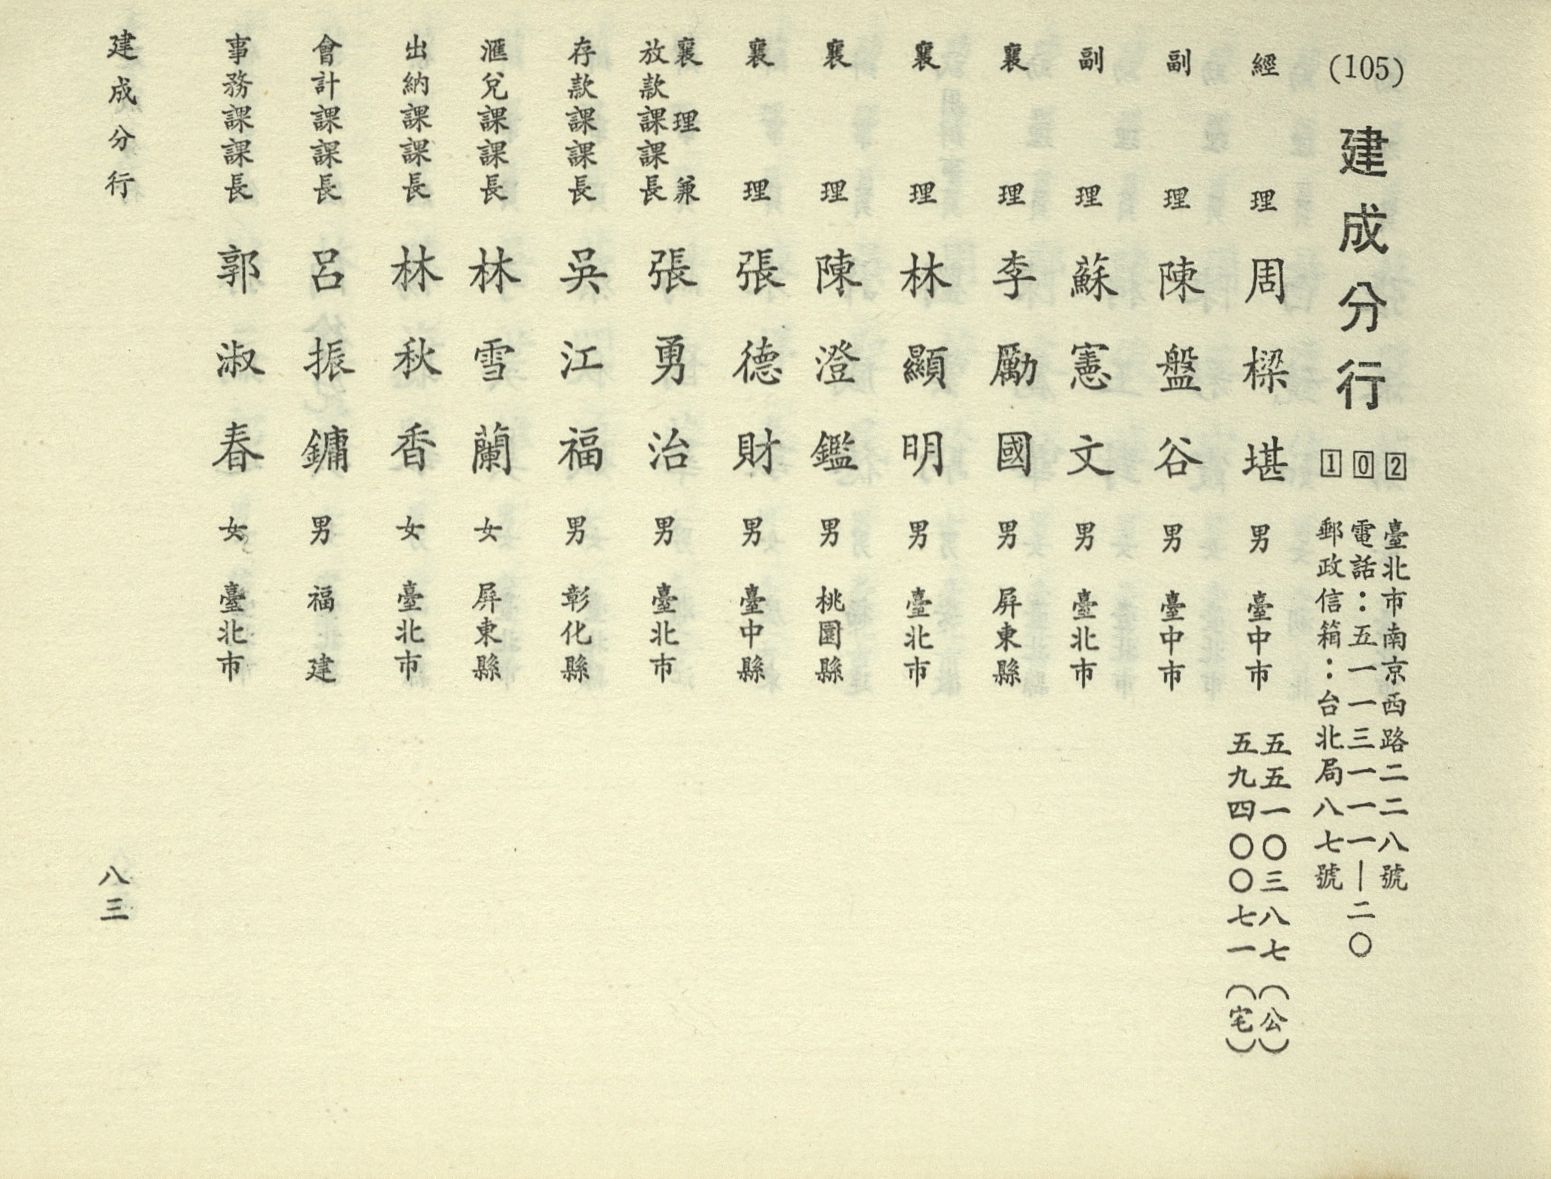 (105) 建成分行
201
臺北市南京西路二二八號
電話：五一一三一一一｜二〇
郵政信箱：台北局八七號
經理 周樑堪 男 臺中市 五五一〇三八七（公）
五九四〇〇七一（宅）
副理 陳盤谷 男 臺中市
副理 蘇憲文 男 臺北市
襄理 李勵國 男 屏東縣
襄理 林顯明 男 臺北市
襄理 陳澄鑑 男 桃園縣
襄理 張德財 男 臺中縣
襄理兼
放款課課長 張勇治 男 臺北市
存款課課長 吳江福 男 彰化縣
滙兌課課長 林雪蘭 女 屏東縣
出納課課長 林秋香 女 臺北市
會計課課長 呂振鏞 男 福建
事務課課長 郭淑春 女 臺北市
建成分行
八三